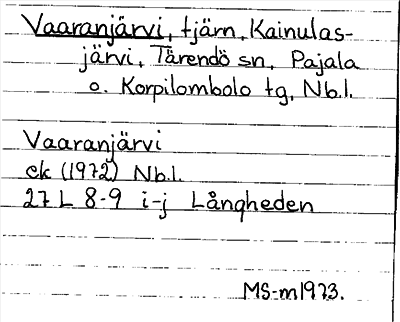 Vaaranjärvi, tjärn, Kainulas-
järvi, Tärendö sn, Pajala
o. Korpilombolo tg, Nb.l.
Vaaranjärvi
ek (1972) Nb.l.
27 L 8-9 i-j Långheden
MS-m1973.